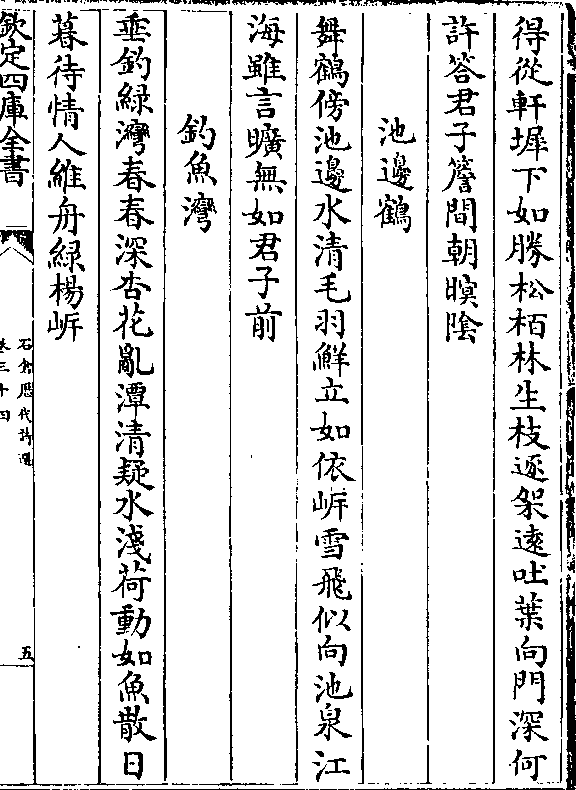 得從軒墀下如勝松栢林生枝逐架遠吐葉向門深何
許答君子簷間朝暝陰
池邊鶴
舞鶴傍池邊水清毛羽鮮立如依岸雪飛似向池泉江
海雖言曠無如君子前
釣魚灣
垂釣綠灣春春深杏花亂潭清疑水淺荷動如魚散日
暮待情人維舟綠楊岸
欽定四庫全書
石倉歷代詩選
卷三十四
五